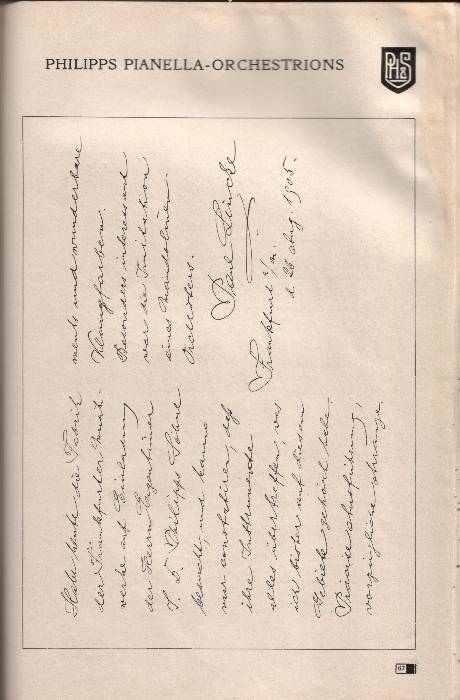 PHILIPPS PIANELLA-ORCHESTRIONS
PH&S
Habe heute die Fabrik
der Frankfurter Musik-
werke auf Einladung
der Herrn Eigentümer
J. D. Philipps Söhne
besucht, und kann
nur constatiren, daß
ihre Instrumente
alles übertreffen, was
ich bisher auf diesem
Gebiete gehört habe.
Präcise Ausführung,
vorzügliche
ments und wunderbare
Klangfarben.
Besonders interessant
war die Imitation
eines Mandolinen
Orchesters.
Paul Lincke
Frankfurt a/M.
d. 28 Aug. 1905.
67